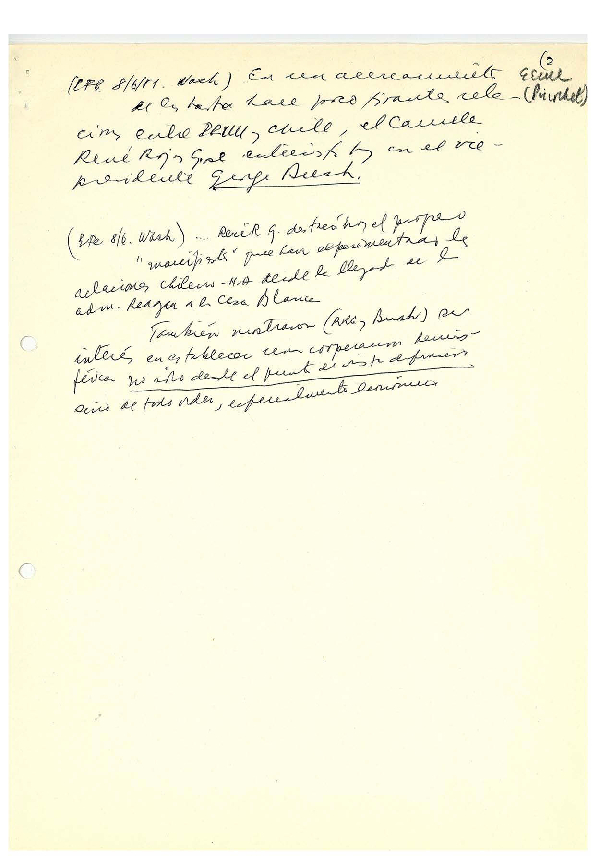 (2
EEUU
(Pinochet)
(EFE. 8/6/81. Wash) En un acercamiento
de las hasta hace poco tirantes rela-
ciones entre EEUU y Chile, el Canciller
René Rojas G se entrevistó hoy en el vice-
presidente George Bush.
(EFE 8/6. Wash) ... René R G. destacó hoy el progreso
que han experimentado las
relaciones chileno-N.A desde la llegada de la
adm. Reagan a la Casa Blanca
También mostraron (RRG y Bush) su
interés en establecer una cooperación hemis-
férica no sólo desde el punto de vista defensivo
sino de todo orden, especialmente económico